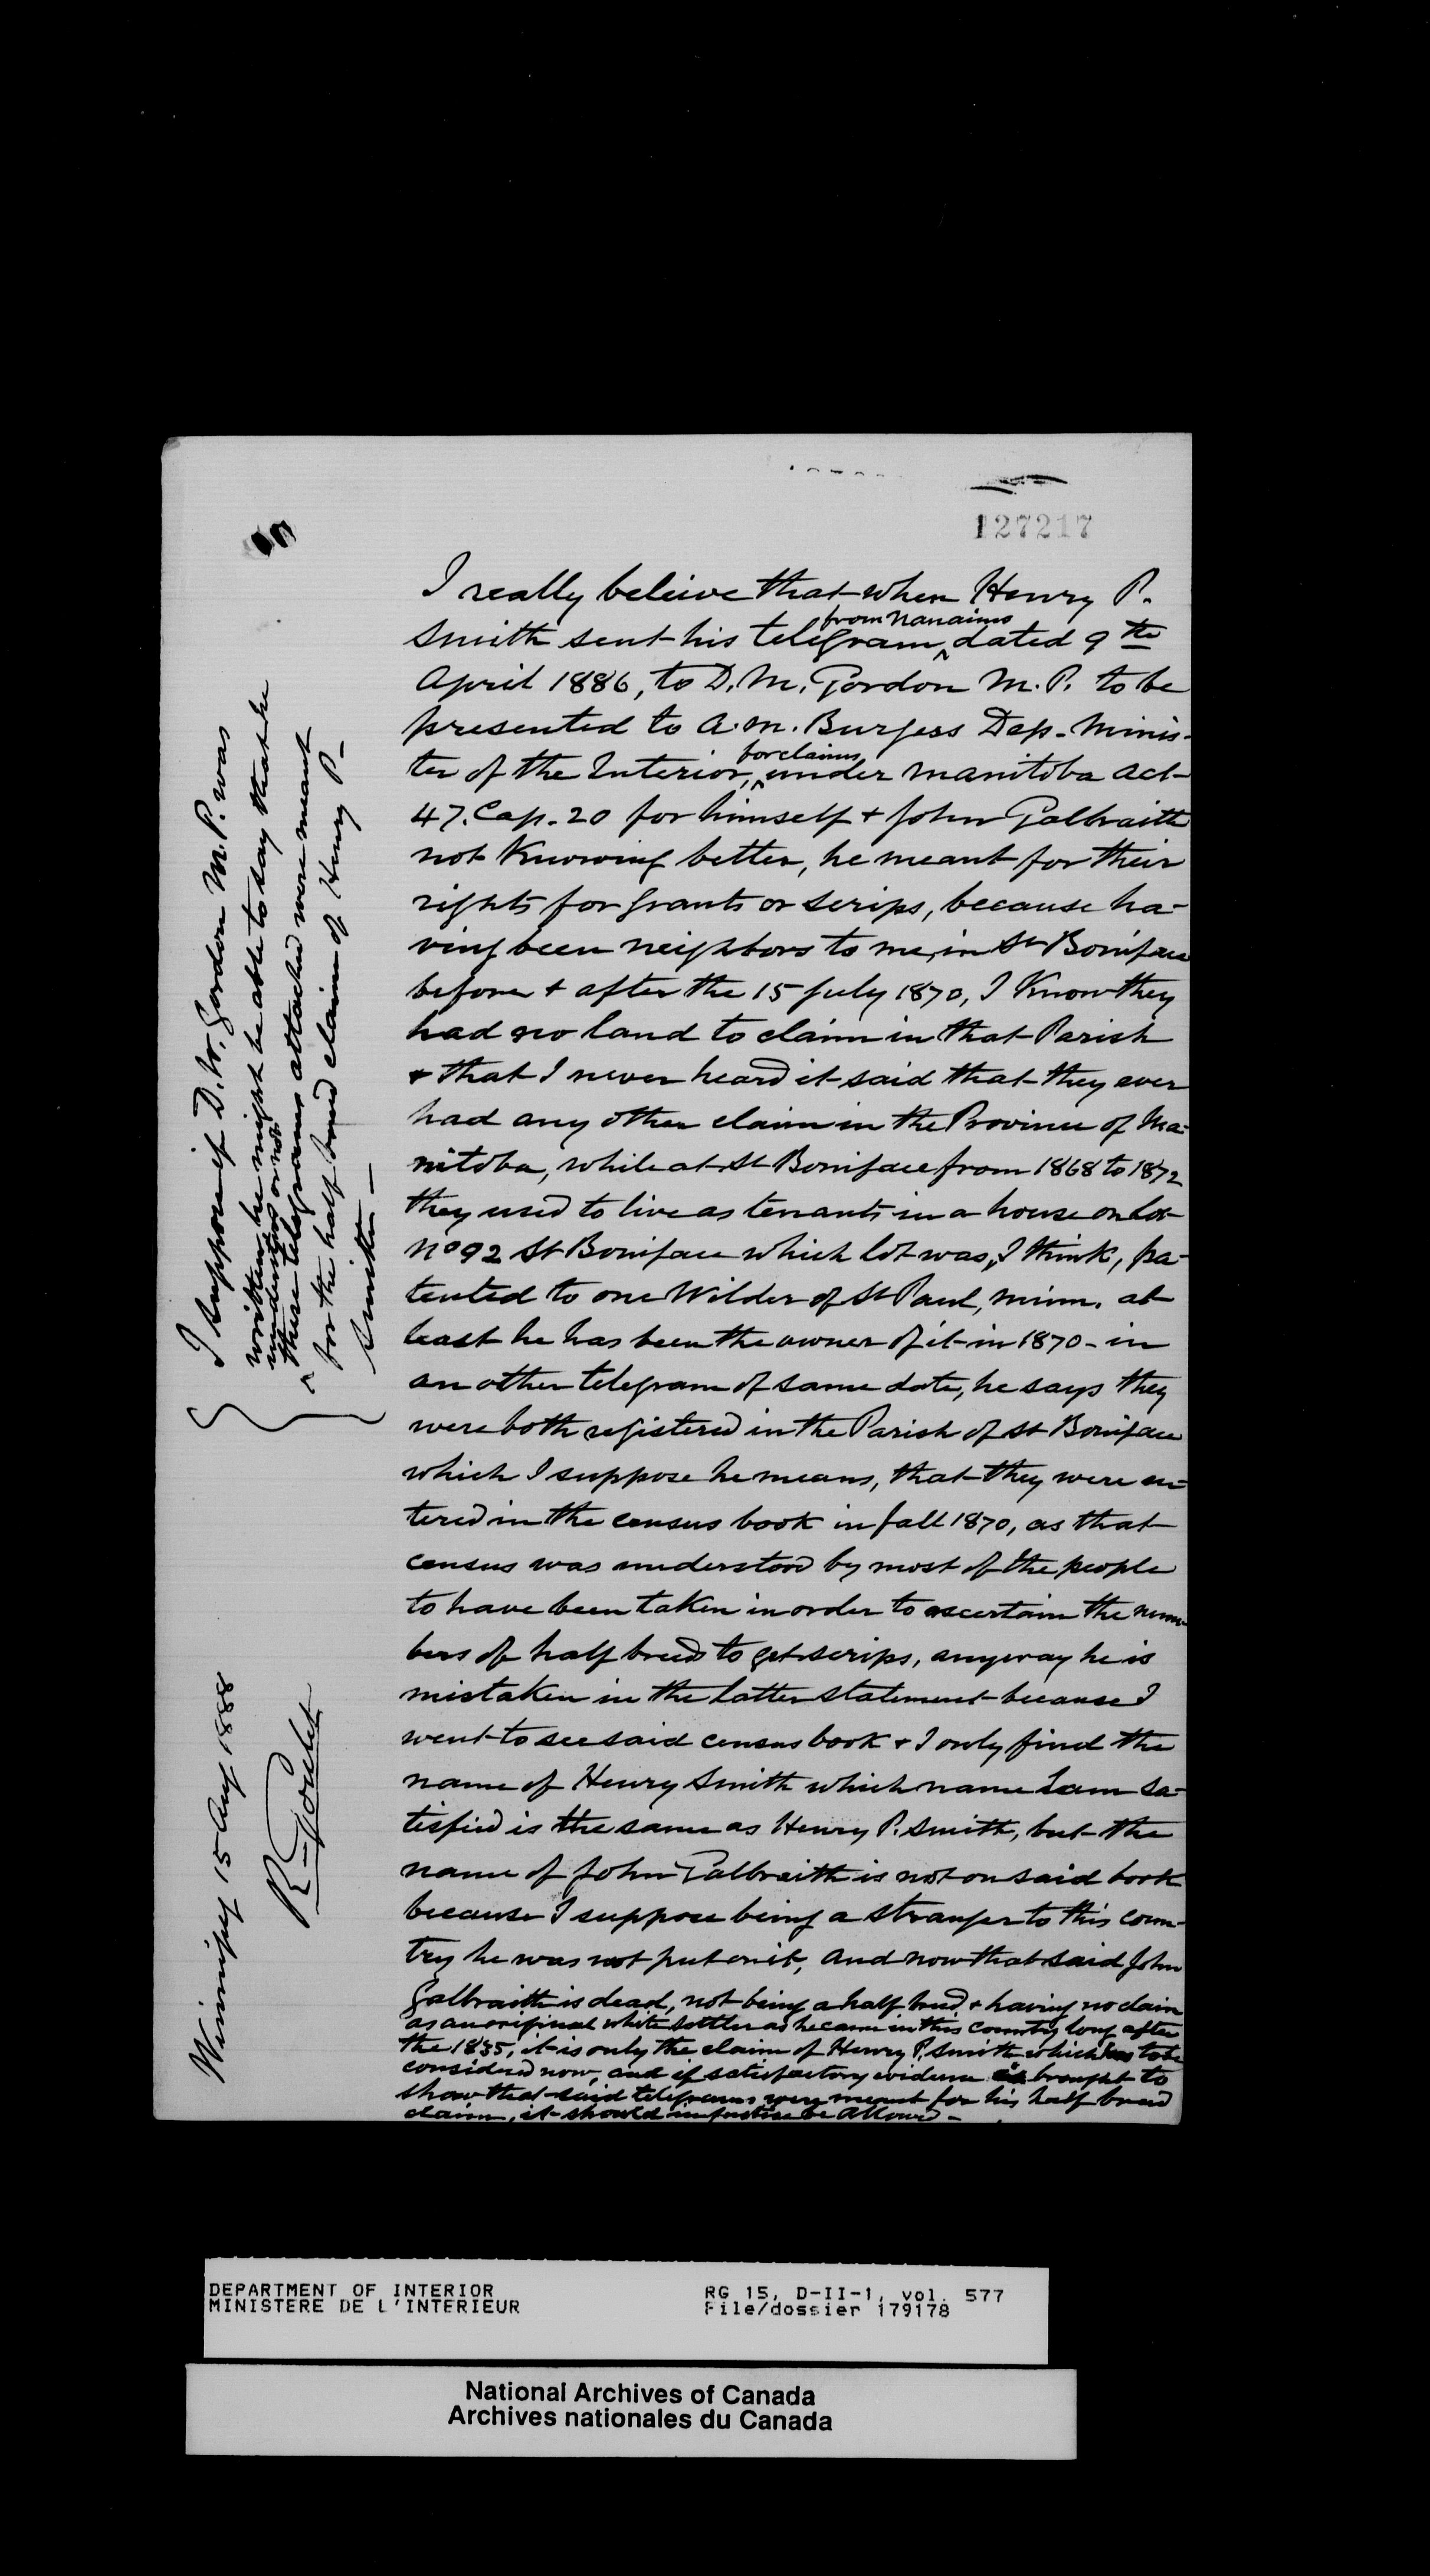 127217
I really beleive that when Henry P.
Smith sent his telegram, from Nanaimo dated 9th
April 1886, to D. M. Gordon M. P. to be
presented to A. M. Burgess Dep. Minis-
ter of the Interior, for claims under Manitoba Act
47. Cap. 20 for himself + John Galbraith
not Knowing better, he meant for their
rights for grants or scrips, because ha-
ving been neighbors to me, in St Boniface
before + after the 15 July 1870, I Know they
had no land to claim in that Parish
+ that I never heard it said that they ever
had any other claim in the Province of Ma-
nitoba, while at St Boniface from 1868 to 1872
they used to live as tenants in a house on lot
No 92 St Boniface which lot was, I think, pa-
tented to one Wilder of St Paul, Minn. at
least he has been the owner of it in 1870 - in
an other telegram of same date, he says they
were both registered in the Parish of St Boniface
which I suppose he means, that they were en-
tered in the census book in fall 1870, as that
census was understood by most of the people
to have been taken in order to ascertain the num-
bers of half breed to get scrips, anyway he is
mistaken in the latter statement because I
went to see said census book + I only find the
name of Henry Smith which name I am sa-
tisfied is the same as Henry P. Smith, but the
name of John Galbraith is not on said book
because I suppose being a stranger to this coun-
try he was not put on it, and now that said John
Galbraith is dead, not being a half breed + having no claim
as an original white settler as he came in this country long after
the 1835, it is only the claim of Henry P. Smith which has to be
considered now, and if satisfactory evidence is brought to
show that said telegrams were meant for his half breed
claim, it should in justice be allowed -
I suppose if D. W. Gordon M. P. was
written, he might be able to say that he
understood or not
these telegrams attached were meant
for the half breed claim of Henry P-
Smith -
Winnipeg 15 Aug 1888
R. Goulet
DEPARTMENT OF INTERIOR
MINISTERE DE L'INTERIEUR
RG 15, D-II-1, vol. 577
File/dossier 179178
National Archives of Canada
Archives nationales du Canada